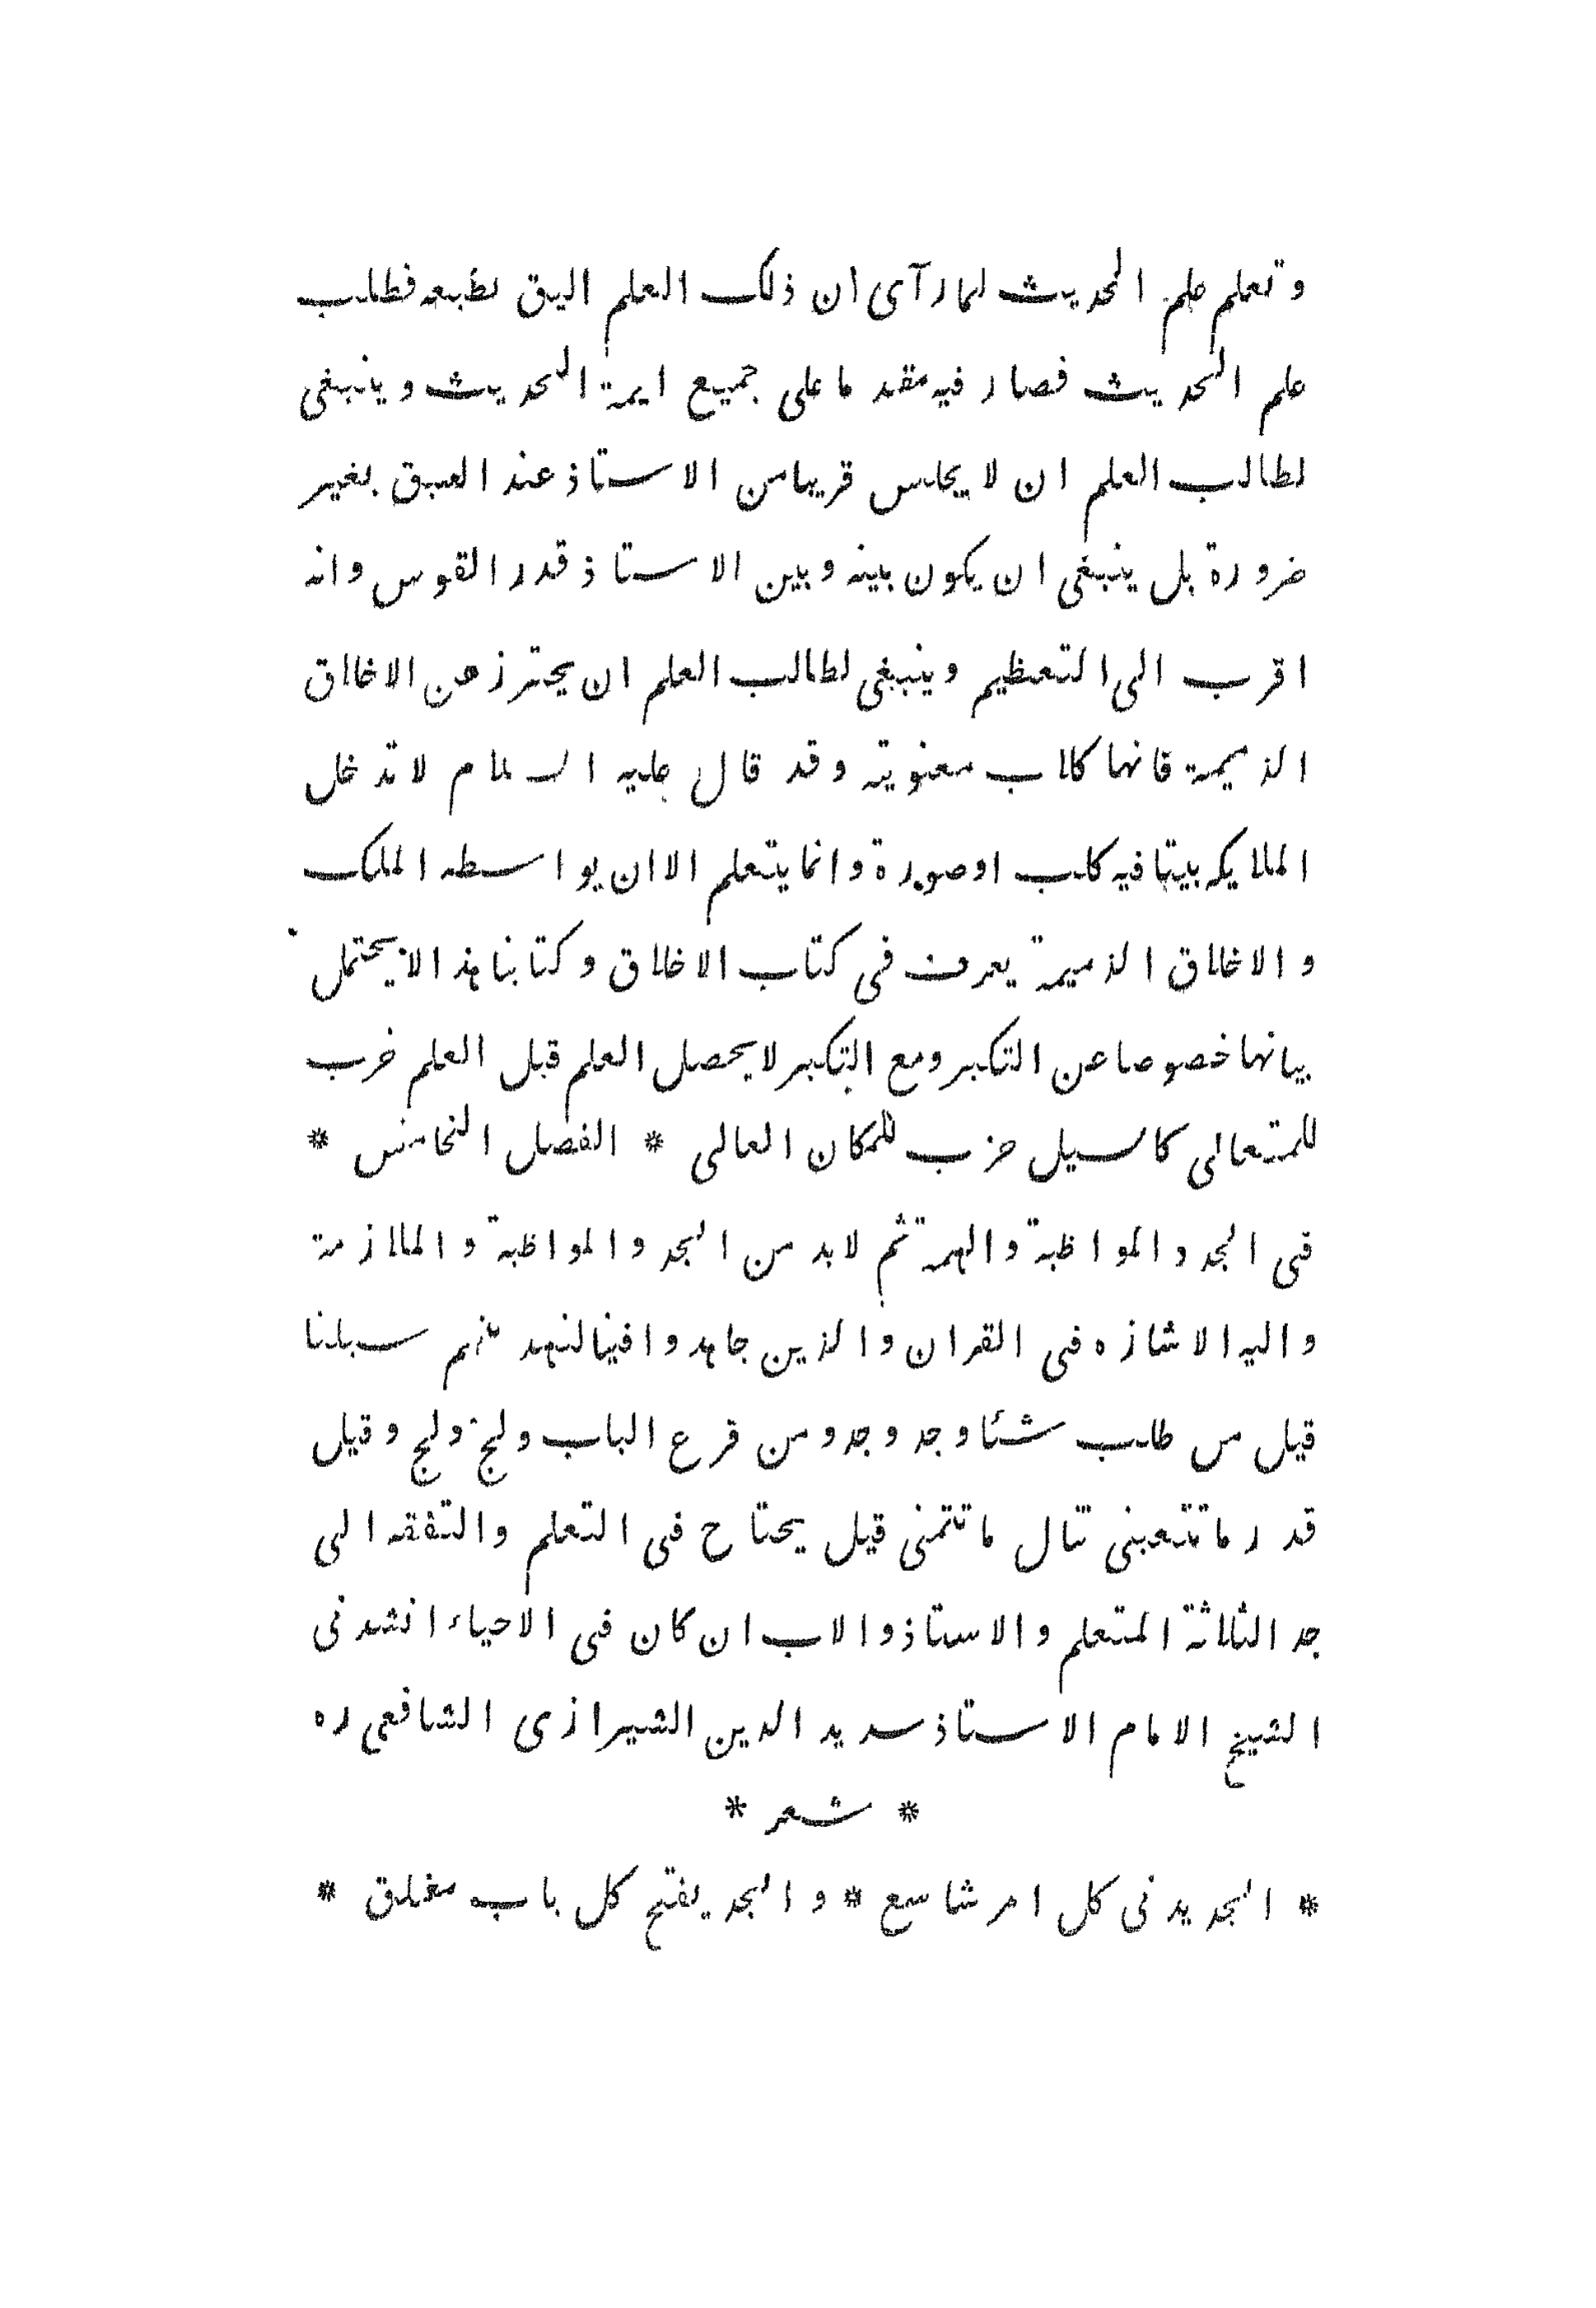 وتعلم علم الحديث لمارآى ان ذلك العلم اليق بطبعه فطلب
علم الحديث فصار فيه مقد ما على جميع ايمة الحديث وينبغى
لطالب العلم ان لا يجلس قريبا من الاستاذ عند السبق بغير
ضرورة بل ينبغى ان يكون بينه وبين الاستاذ قدر القوس وانه
اقرب الى التعظيم وينبغى لطالب العلم ان يحترز عن الاخلاق
الذميمة فانها كلاب معنوية وقد قال عليه السلام لا تدخل
الملايكه بيتا فيه كلب او صورة وانما يتعلم الاان يواسطه الملك
والاخلاق الذميمة يعرف فى كتاب الاخلاق وكتابنا هذا لا يحتمل
بيانها خصوصا عن التكبر ومع التكبر لا يحصل العلم قبل العلم خرب
للمتعالى كاسيل حزب للمكان العالى * الفصل الخامس *
فى الجد والمواظبة والهمة ثم لا بد من الجد والمواظبة والملازمة
واليه الاشازه فى القران والذين جاهدوا فينا لنهدينهم سبلنا
قيل من طلب شئا وجد وجد ومن قرع الباب ولج ولج وقيل
قدر ما تتعبنى تنال ما تتمنى قيل يحتاح فى التعلم والتفقه الى
جد الثلاثة المتعلم والاستاذ والاب ان كان فى الاحياء انشدنى
الشيخ الامام الاستاذ سديد الدين الشيرازى الشافعى ره
* شعر *
* الجد يدنى كل امر شاسع * والجد يفتح كل باب مغلق *